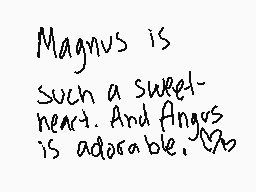 Magnus is
such a sweet-
heart. And Angus
is adorable. ♡♡